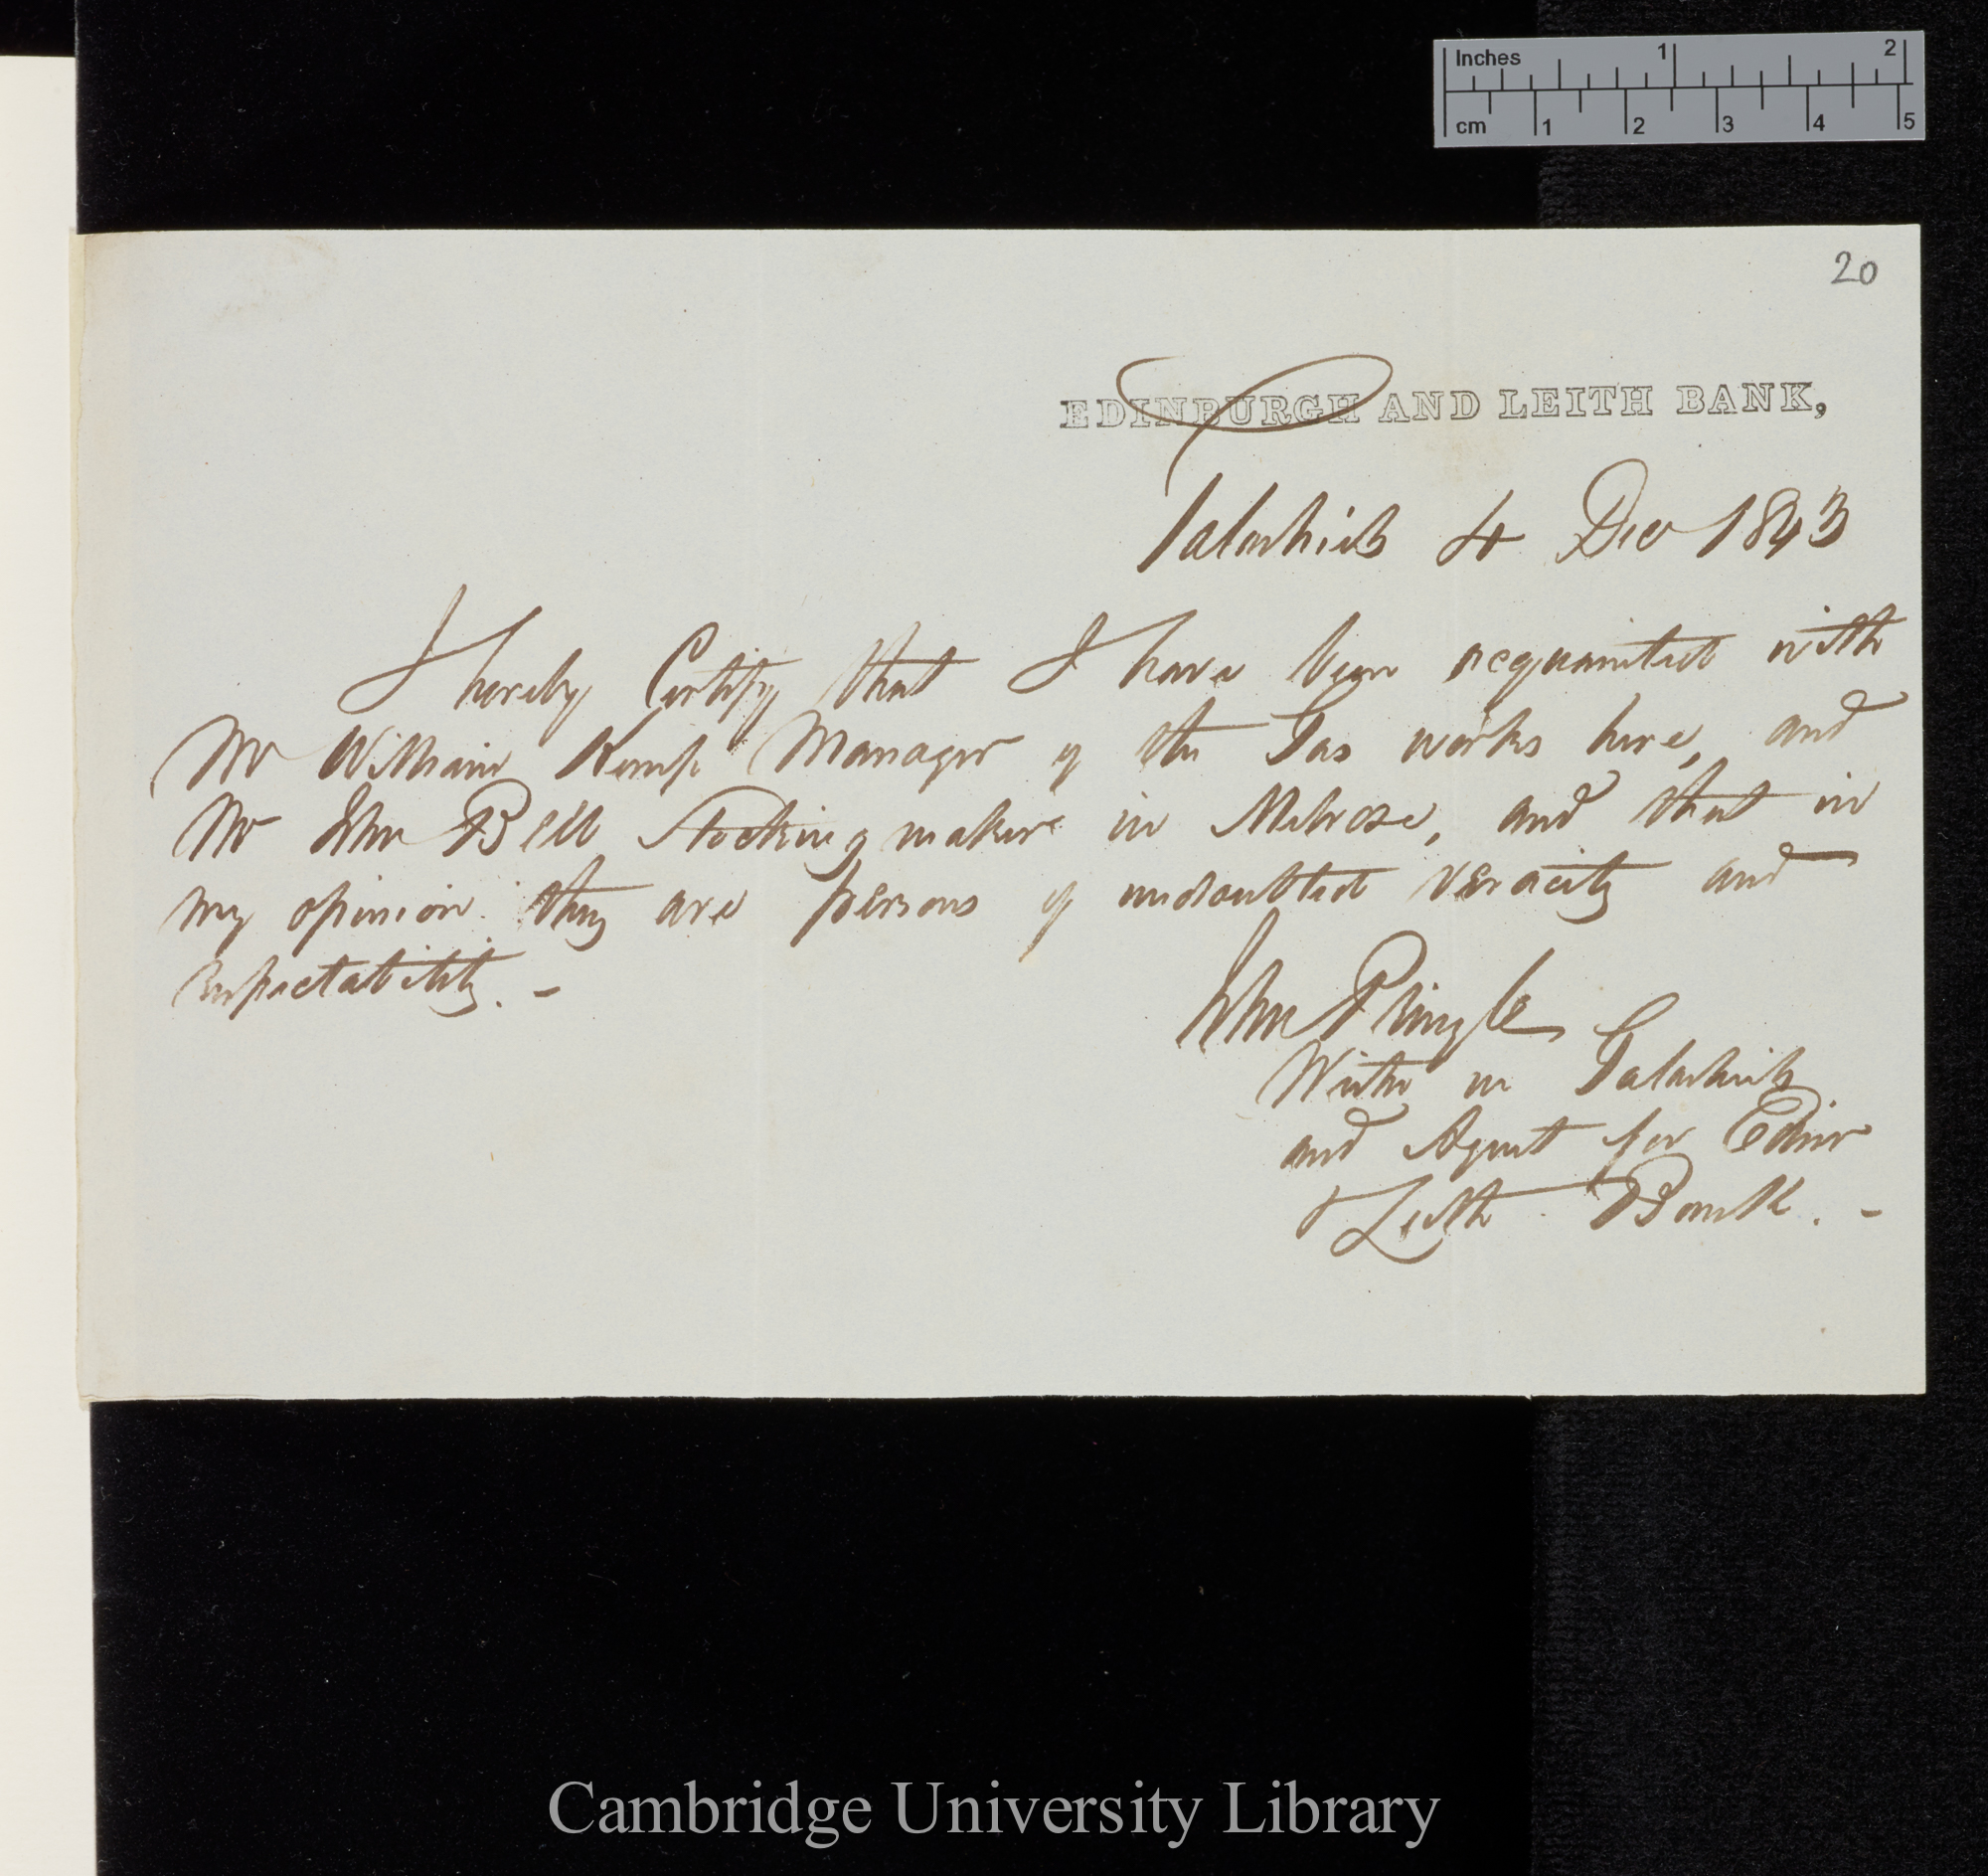 Inches 1 2
cm 1 2 3 4 5
20
EDINBURGH AND LEITH BANK,
Galashiels 4 Dec 1843
I hereby Certify that I have been acquainted with
Mr William Kemp Manager of the Gas works here, and
Mr John Bell Stocking maker in Melrose, and that in
my opinion they are persons of undoubted veracity and
respectability. -
John Pringle
Writer in Galashiels
and Agent for Edinr
& Leith Bank. -
Cambridge University Library